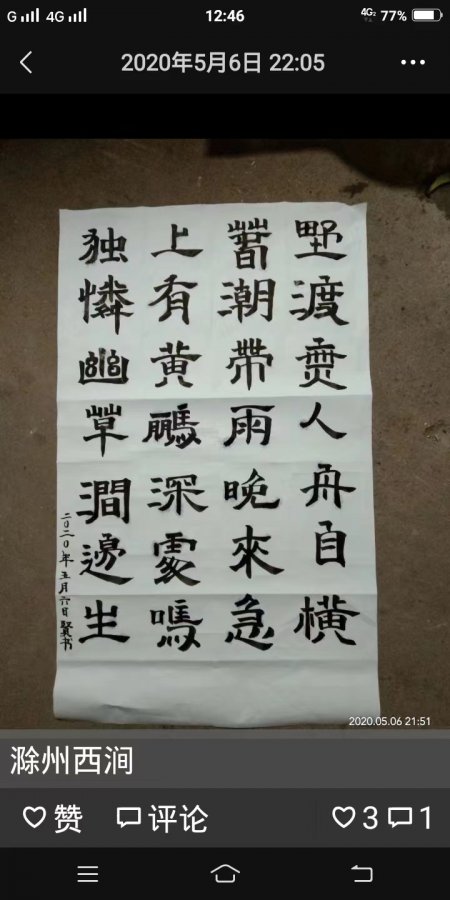 G 4G 12:46 4G 77%
2020年5月6日 22:05
独憐幽草澗邊生
上有黄鸝深處鳴
萅潮帶雨晚來急
野渡無人舟自橫
二〇二〇年五月六日 賢书
2020.05.06 21:51
滁州西涧
赞 评论 3 1